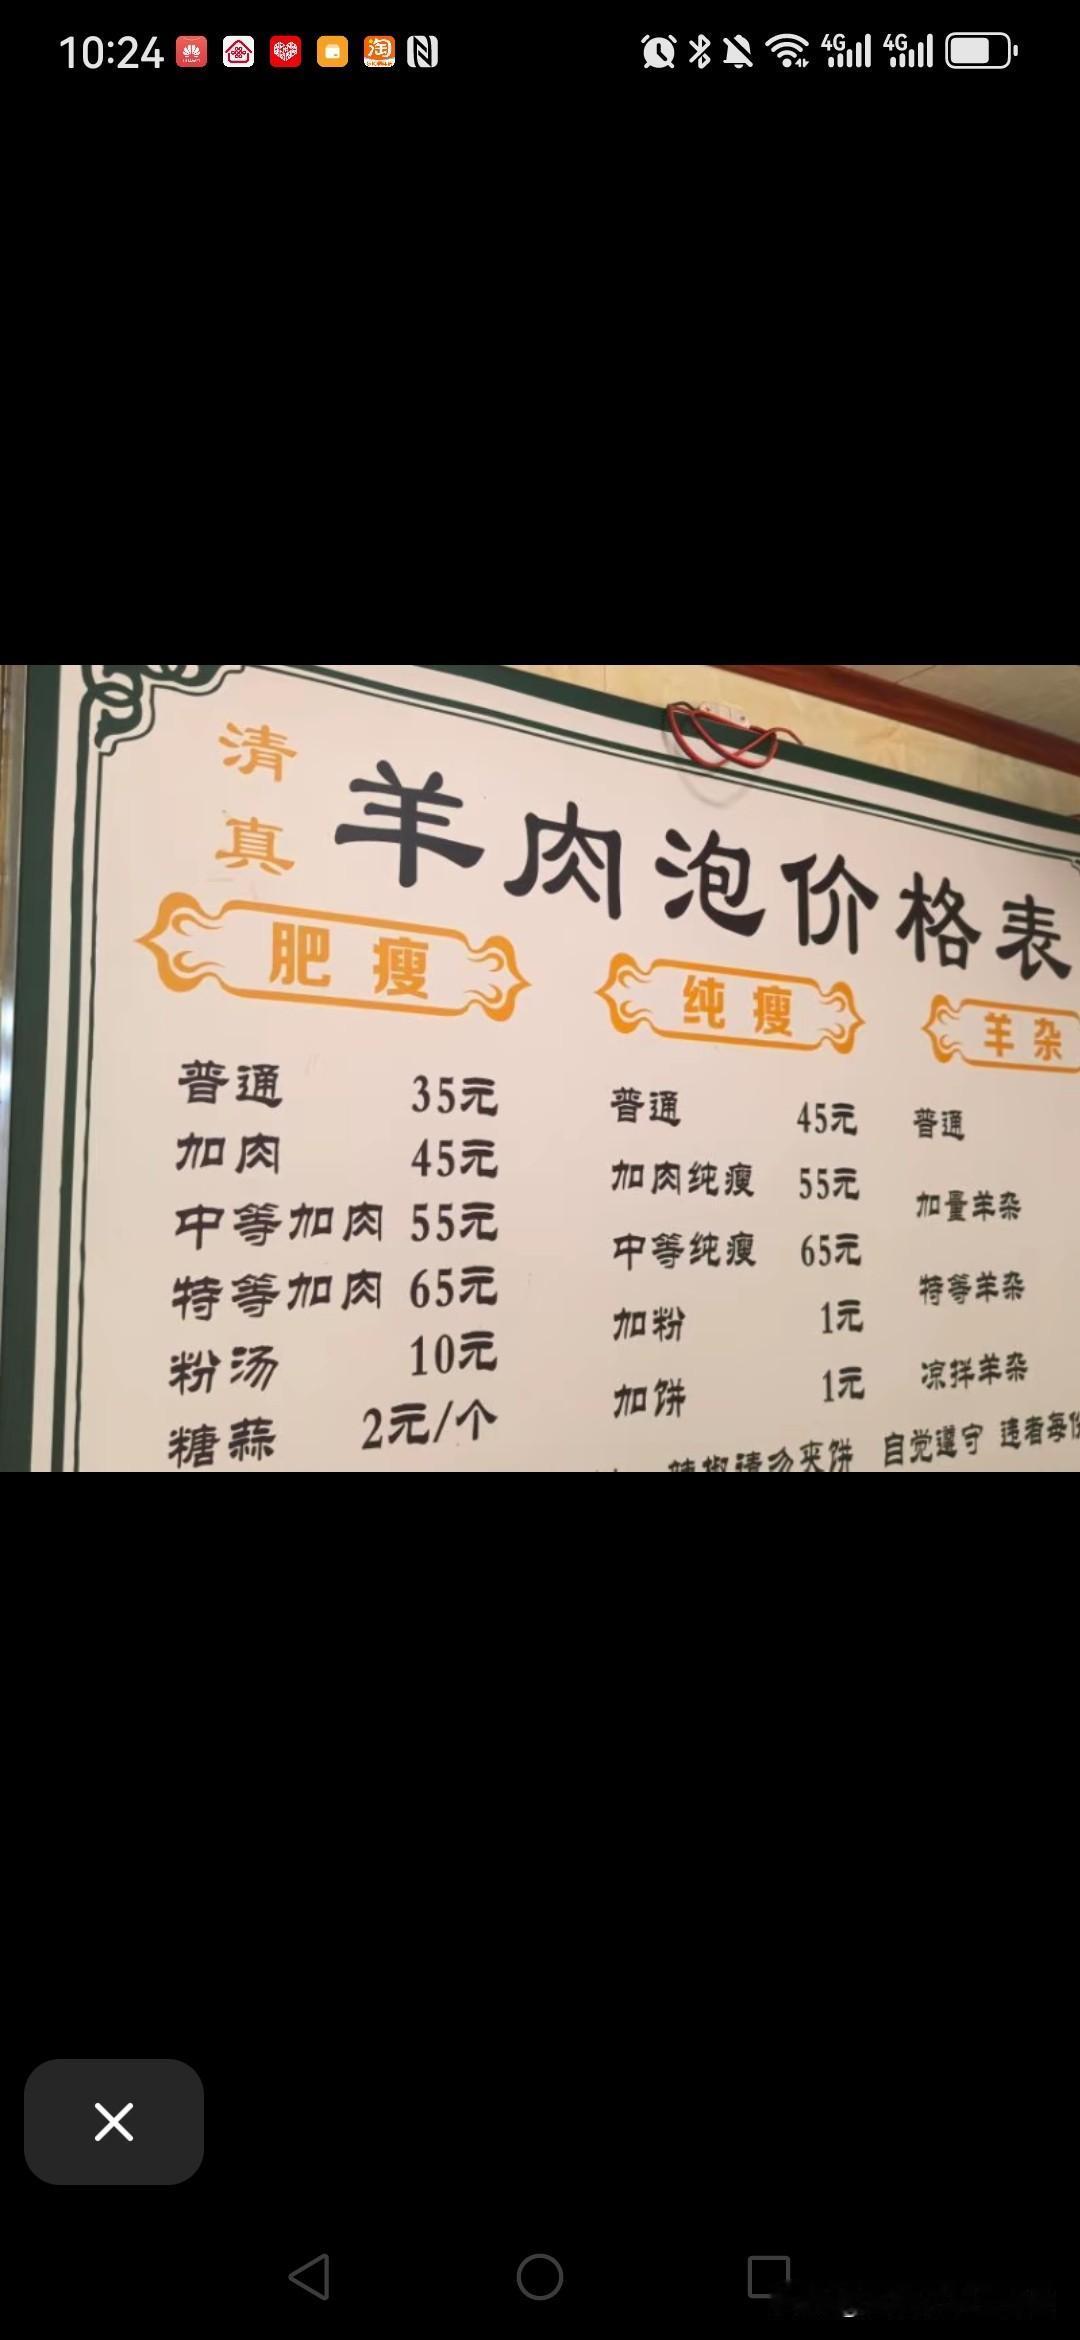 10:24
4G 4G
清真
羊肉泡价格表
肥瘦
普通 35元
加肉 45元
中等加肉 55元
特等加肉 65元
粉汤 10元
糖蒜 2元/个
纯瘦
普通 45元
加肉纯瘦 55元
中等纯瘦 65元
加粉 1元
加饼 1元
羊杂
普通
加量羊杂
特等羊杂
凉拌羊杂
辣椒请勿夹饼 自觉遵守 违者每份